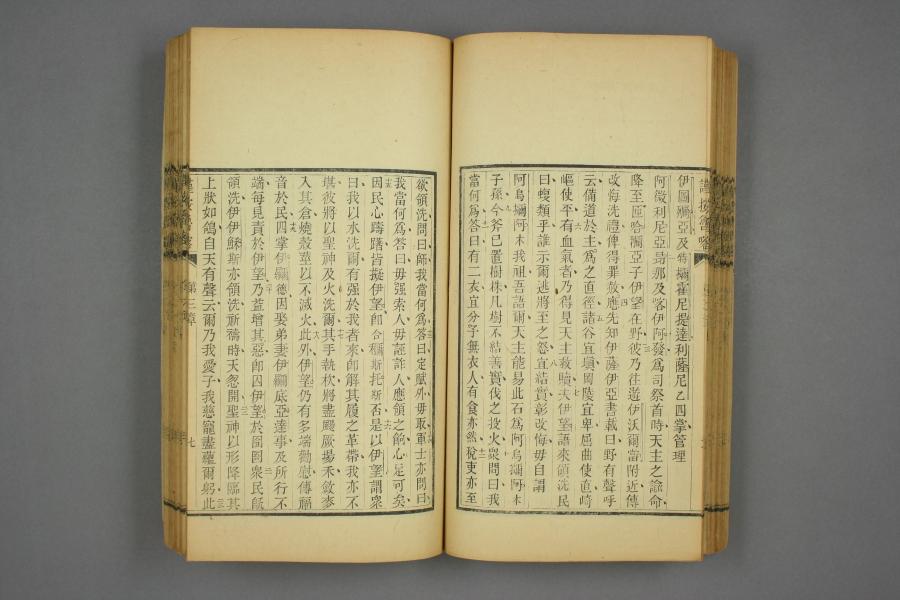 伊圖爾亞及特爾霍尼提達利薩尼乙四掌管理
阿微利尼亞昻那及喀伊阿發為司祭首時天主之諭命
降至匝哈爾亞子伊望在野彼乃往遊伊沃爾當附近傳
改悔洗禮俾得罪赦應先知伊薩伊亞書載曰野有聲呼
云備道於主為之直徑諸谷宜填岡陵宜卑屈曲使直崎
嶇使平有血氣者乃得見天主救贖夫伊望語來領洗民
曰蝮類乎誰示爾逃將至之怒宜結實彰改悔毋自謂
阿烏爾阿木我祖吾語爾天主能易此石為阿烏爾阿木
子孫今斧已置樹株凡樹不結善實伐之投火眾問曰我
當何為答曰有二衣宜分予無衣人有食亦然稅吏亦至
欲領洗問曰師我當何為答曰定賦外毋取軍士亦問曰
我當何為答曰毋强索人毋誣詐人應領之餉心足可矣
因民心躊躇皆擬伊望即合爾斯托斯否是以伊望謂眾
曰我以水洗爾有强於我者來即解其履之革帶我亦不
堪彼將以聖神及火洗爾其手執杴將盡颺厥場禾斂麥
入其倉燒殼草以不滅火此外伊望仍有多端勸慰傳福
音於民四掌伊爾德因娶弟妻伊爾底亞達事及所行不
端每見責於伊望乃益增其惡即囚伊望於囹圄眾民既
領洗伊伊穌斯亦領洗祈禱時天忽開聖神以形降臨其
上狀如鴿自天有聲云爾乃我愛子我慈寵盡蘊爾躬此
第三章
七